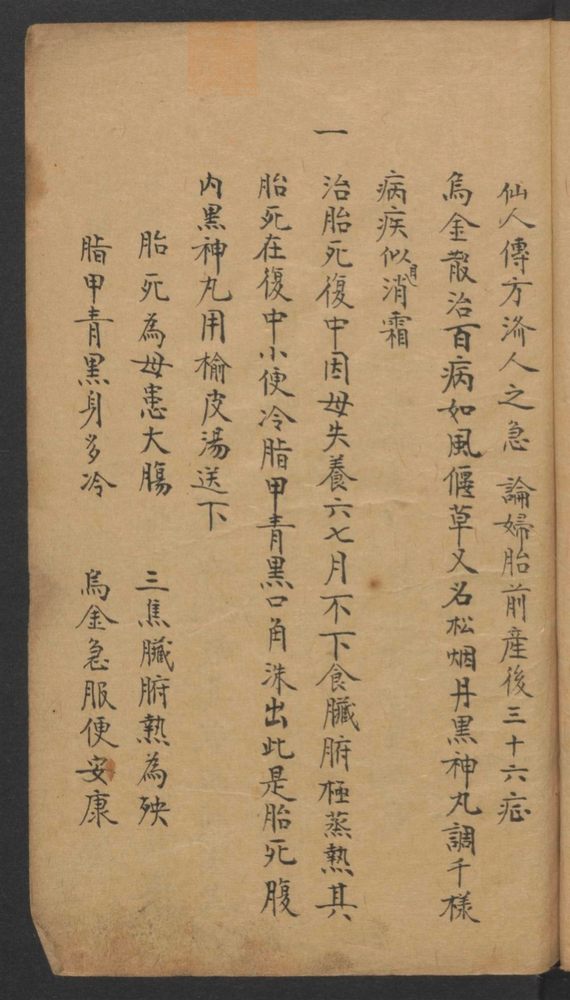 仙人傳方済人之急 論婦胎前産後三十六症
烏金散治百病如風偃草又名松烟丹黒神丸調千様
病疾似見消霜
一 治胎死復中因母失養六七月不下食臓腑極蒸熱其
胎死在復中小便冷脂甲青黒口角沫出此是胎死腹
内黒神丸用榆皮湯送下
胎死為母患大腸 三焦臓腑熱為殃
脂甲青黒身多冷 烏金急服便安康